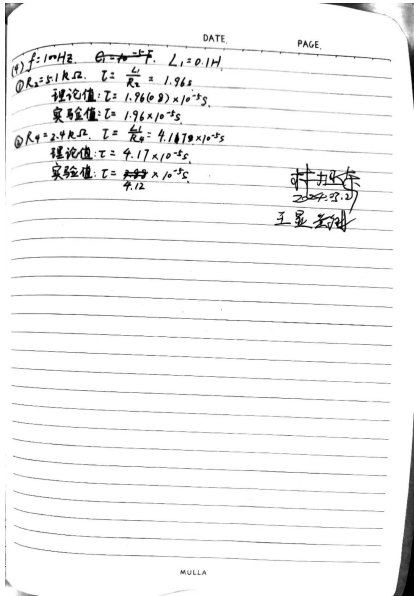 DATE.
PAGE.
(4) f=100Hz. C₁=10⁻⁵F. L₁=0.1H,
① R₂=5.1kΩ. τ= L₁/R₂ = 1.96s
理论值:τ=1.96(08)×10⁻⁵s.
实验值:τ=1.96×10⁻⁵s.
② R₄=2.4kΩ. τ= L₁/R₄ = 4.1679×10⁻⁵s
理论值:τ= 4.17×10⁻⁵s.
实验值:τ= ×10⁻⁵s.
4.12
2024.3.27
MULLA